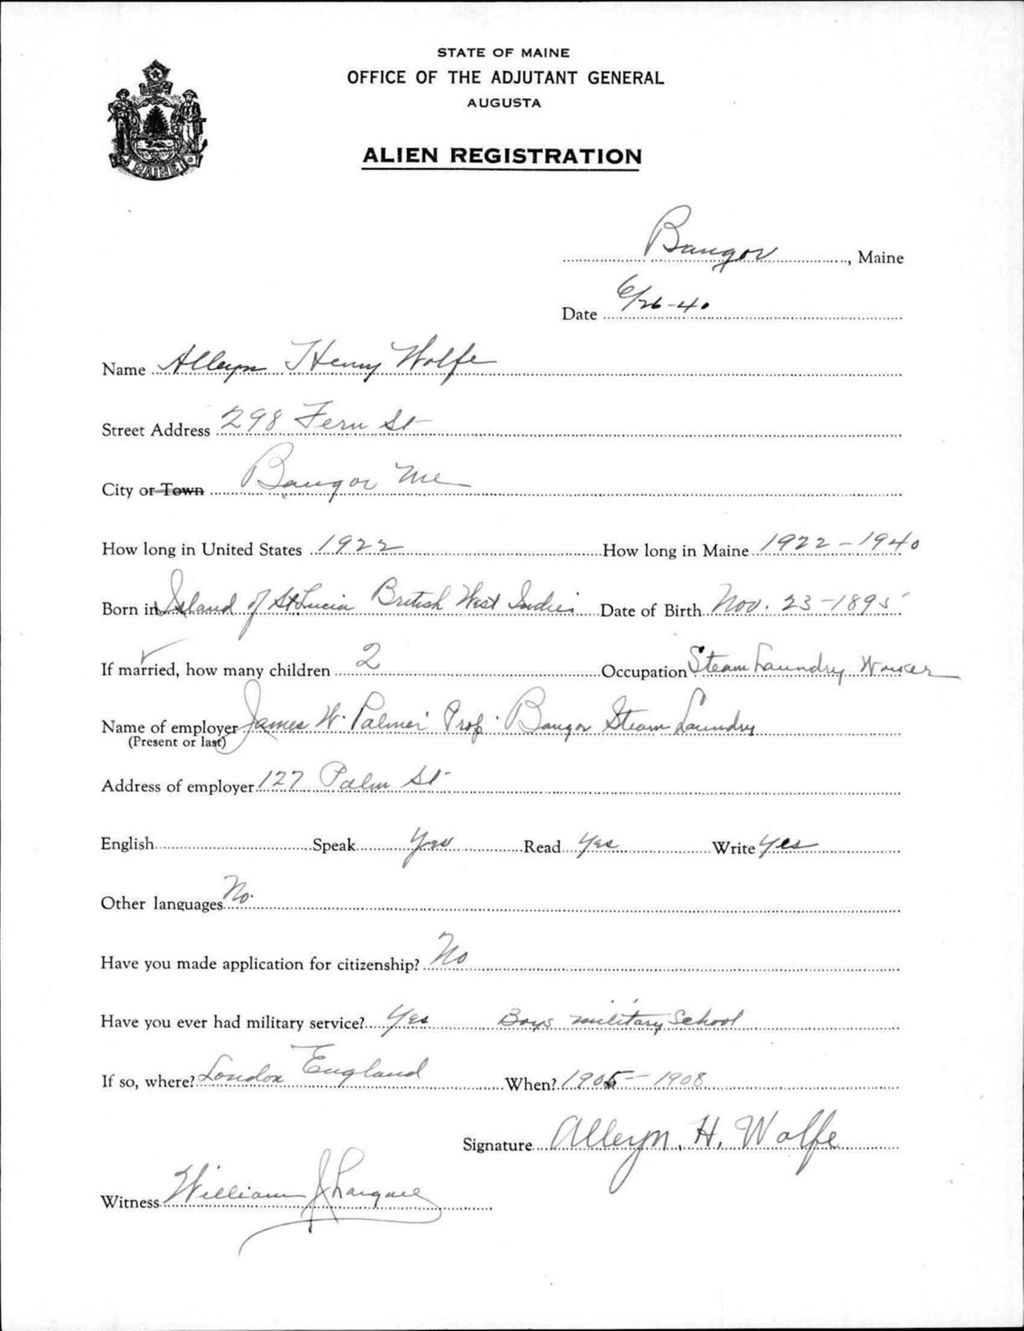 STATE OF MAINE
OFFICE OF THE ADJUTANT GENERAL
AUGUSTA
ALIEN REGISTRATION
MAINE
Bangor, Maine
Date 6/26-40
Name Alleyn Henry Wolfe
Street Address 298 Fern St
City or Town Bangor Me
How long in United States 1922 How long in Maine 1922-1940
Born in Island of St Lucia British West Indies Date of Birth Nov. 23-1895
If married, how many children 2 Occupation Steam Laundry Worker
Name of employer James W. Palmer Prof. Bangor Steam Laundry
(Present or last)
Address of employer 127 Palm St
English Speak Yes Read Yes Write Yes
Other languages No.
Have you made application for citizenship? No
Have you ever had military service? Yes Boys military School
If so, where? London England When? 1905-1908
Signature Alleyn. H. Wolfe
Witness William J